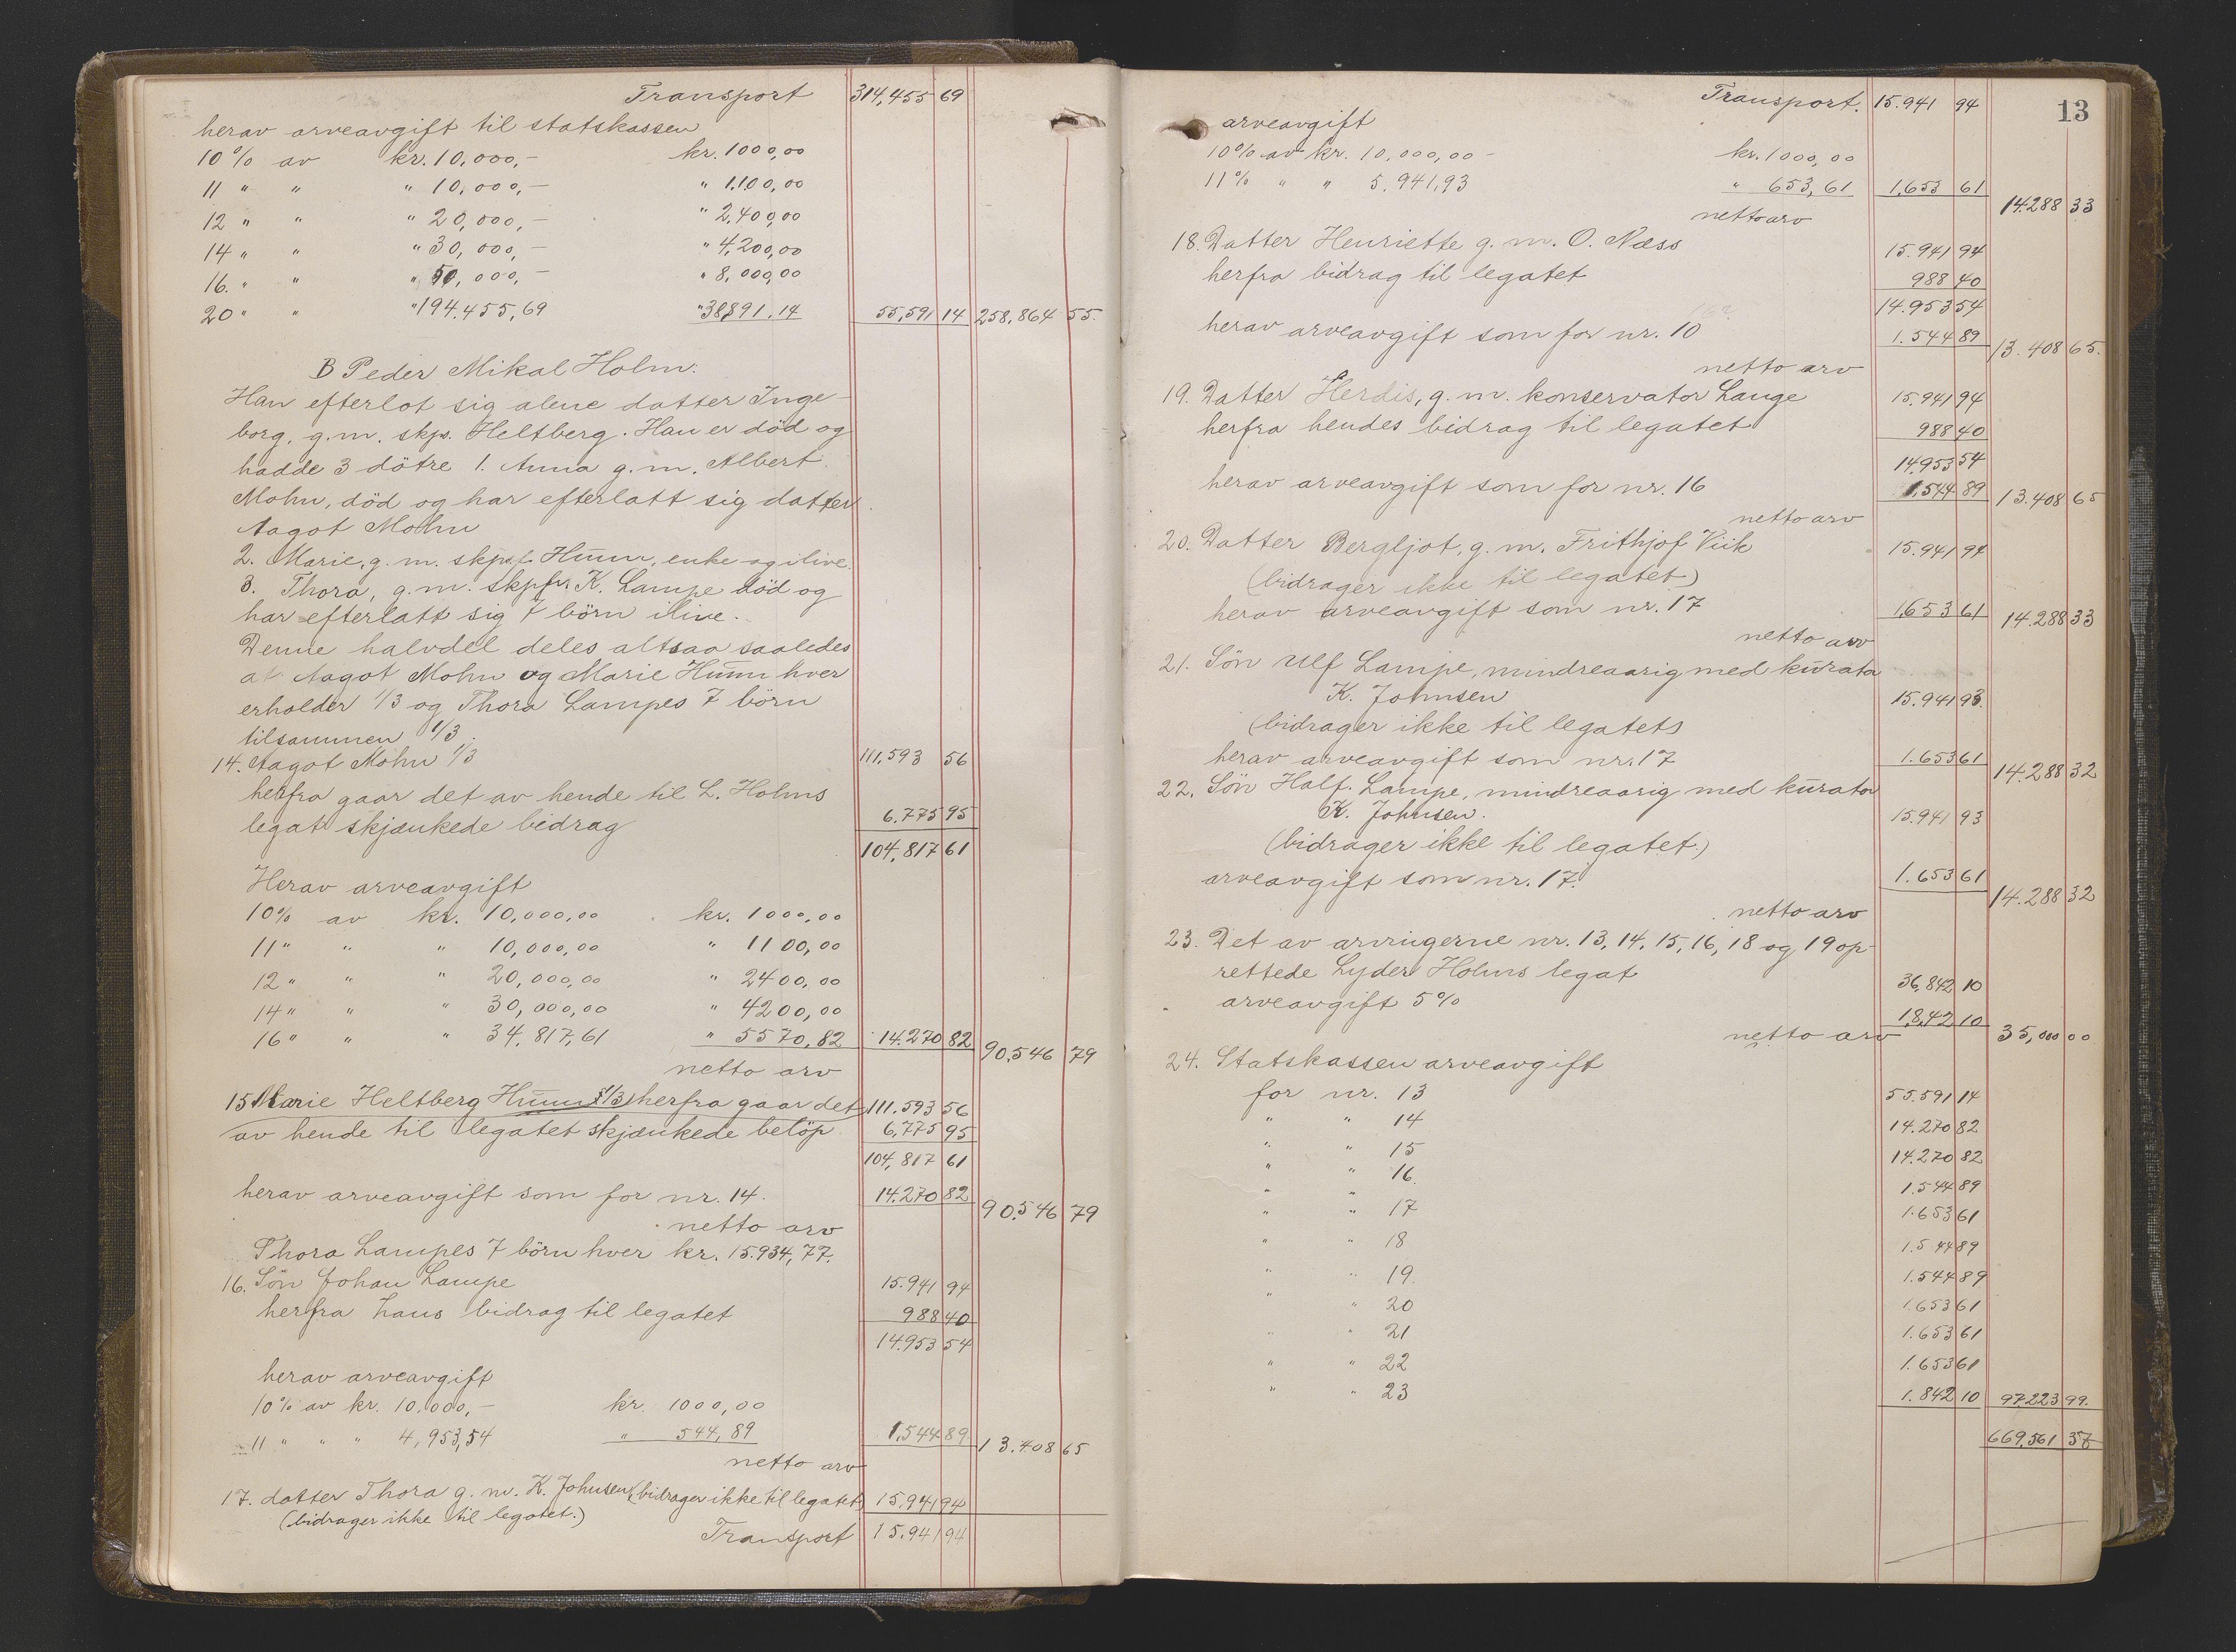 Transport 314,455 69
herav arveavgift til statskassen
10% av kr. 10,000,- kr. 1000,00
11 " " " 10,000,- " 1.100,00
12 " " " 20,000,- " 2,400,00
14 " " " 30,000,- " 4,200,00
16. " " " 50,000,- " 8,000,00
20 " " " 194.455,69 " 38,891.14 55,591 14 258,864 55.
B Peder Mikal Holm:
Han efterlot sig alene datter Inge-
borg, g.m. skps. Heltberg. Han er död og
hadde 3 dötre 1. Anna g.m. Albert
Mohn, död og har efterlatt sig datter
Aagot Mohn
2. Marie, g.m. skpsf. Humm, enke og ilive.
3. Thora, g.m. skpfr. K. Lampe död og
har efterlatt sig 7 börn ilive.
Denne halvdel deles altsaa saaledes
at Aagot Mohn og Marie Humm hver
erholder 1/3 og Thora Lampes 7 börn
tilsammen 1/3.
14. Aagot Mohn 1/3 111,593 56
herfra gaar det av hende til L. Holms
legat skjænkede bidrag 6.775 95
104,817 61
Herav arveavgift
10% av kr. 10,000,00 kr. 1000,00
11 " " " 10,000,00 " 1100,00
12 " " " 20,000,00 " 2400,00
14 " " " 30,000,00 " 4200,00
16 " " " 34,817,61 " 5570,82 14.270 82 90,546 79
netto arv
15 Marie Heltberg Humm (1/3) herfra gaar det 111.593 56
av hende til legatet skjænkede belöp 6,775 95
104,817 61
herav arveavgift som for nr. 14. 14.270 82 90.546 79
netto arv
Thora Lampes 7 börn hver kr. 15.934,77.
16. Sön Johan Lampe 15.941 94
herfra hans bidrag til legatet 988 40
14.953 54
herav arveavgift
10% av kr. 10.000,- kr. 1000,00
11 " " " 4,953,54 " 544,89 1,544 89 13.408 65
netto arv
17. datter Thora g.m. K. Johnsen (bidrager ikke til legatet) 15.941 94
(bidrager ikke til legatet.)
Transport 15.941 94
13
Transport. 15.941 94
arveavgift
10% av kr. 10,000,00 - kr. 1000,00
11% " " 5.941,93 " 653,61 1,653 61 14.288 33
netto arv
18. Datter Henriette g.m. O. Næss 15.941 94
herfra bidrag til legatet 988 40
14.953 54
herav arveavgift som for nr. 10 1.544 89 13.408 65.
netto arv
19. Datter Herdis, g.m. konservator Lange 15.941 94
herfra hendes bidrag til legatet 988 40
14.953 54
herav arveavgift som for nr. 16 1.544 89 13.408 65
netto arv
20. Datter Bergljot, g.m. Frithjof Viik 15.941 94
(bidrager ikke til legatet)
herav arveavgift som nr. 17 1,653 61 14.288 33
netto arv
21. Sön Ulf Lampe, mindreaarig med kurato
K. Johnsen 15.941 93.
(bidrager ikke til legatet)
herav arveavgift som nr. 17 1.653 61 14.288 32
22. Sön Half. Lampe, mindreaarig med kurator
K. Johnsen. 15.941 93
(bidrager ikke til legatet.)
arveavgift som nr. 17. 1.653 61 14.288 32
netto arv
23. Det av arvingerne nr. 13, 14, 15, 16, 18 og 19 op-
rettede Lyder Holms legat 36,842 10
arveavgift 5% 1,842 10 35,000 00
netto arv
24. Statskassen arveavgift
for nr. 13 55.591 14
" " 14 14.270 82
" " 15 14.270 82
" " 16. 1.544 89
" " 17 1.653 61
" " 18 1.544 89
" " 19. 1.544 89
" " 20 1.653 61
" " 21 1.653 61
" " 22 1.653 61
" " 23 1.842 10 97.223 99.
669,561 37